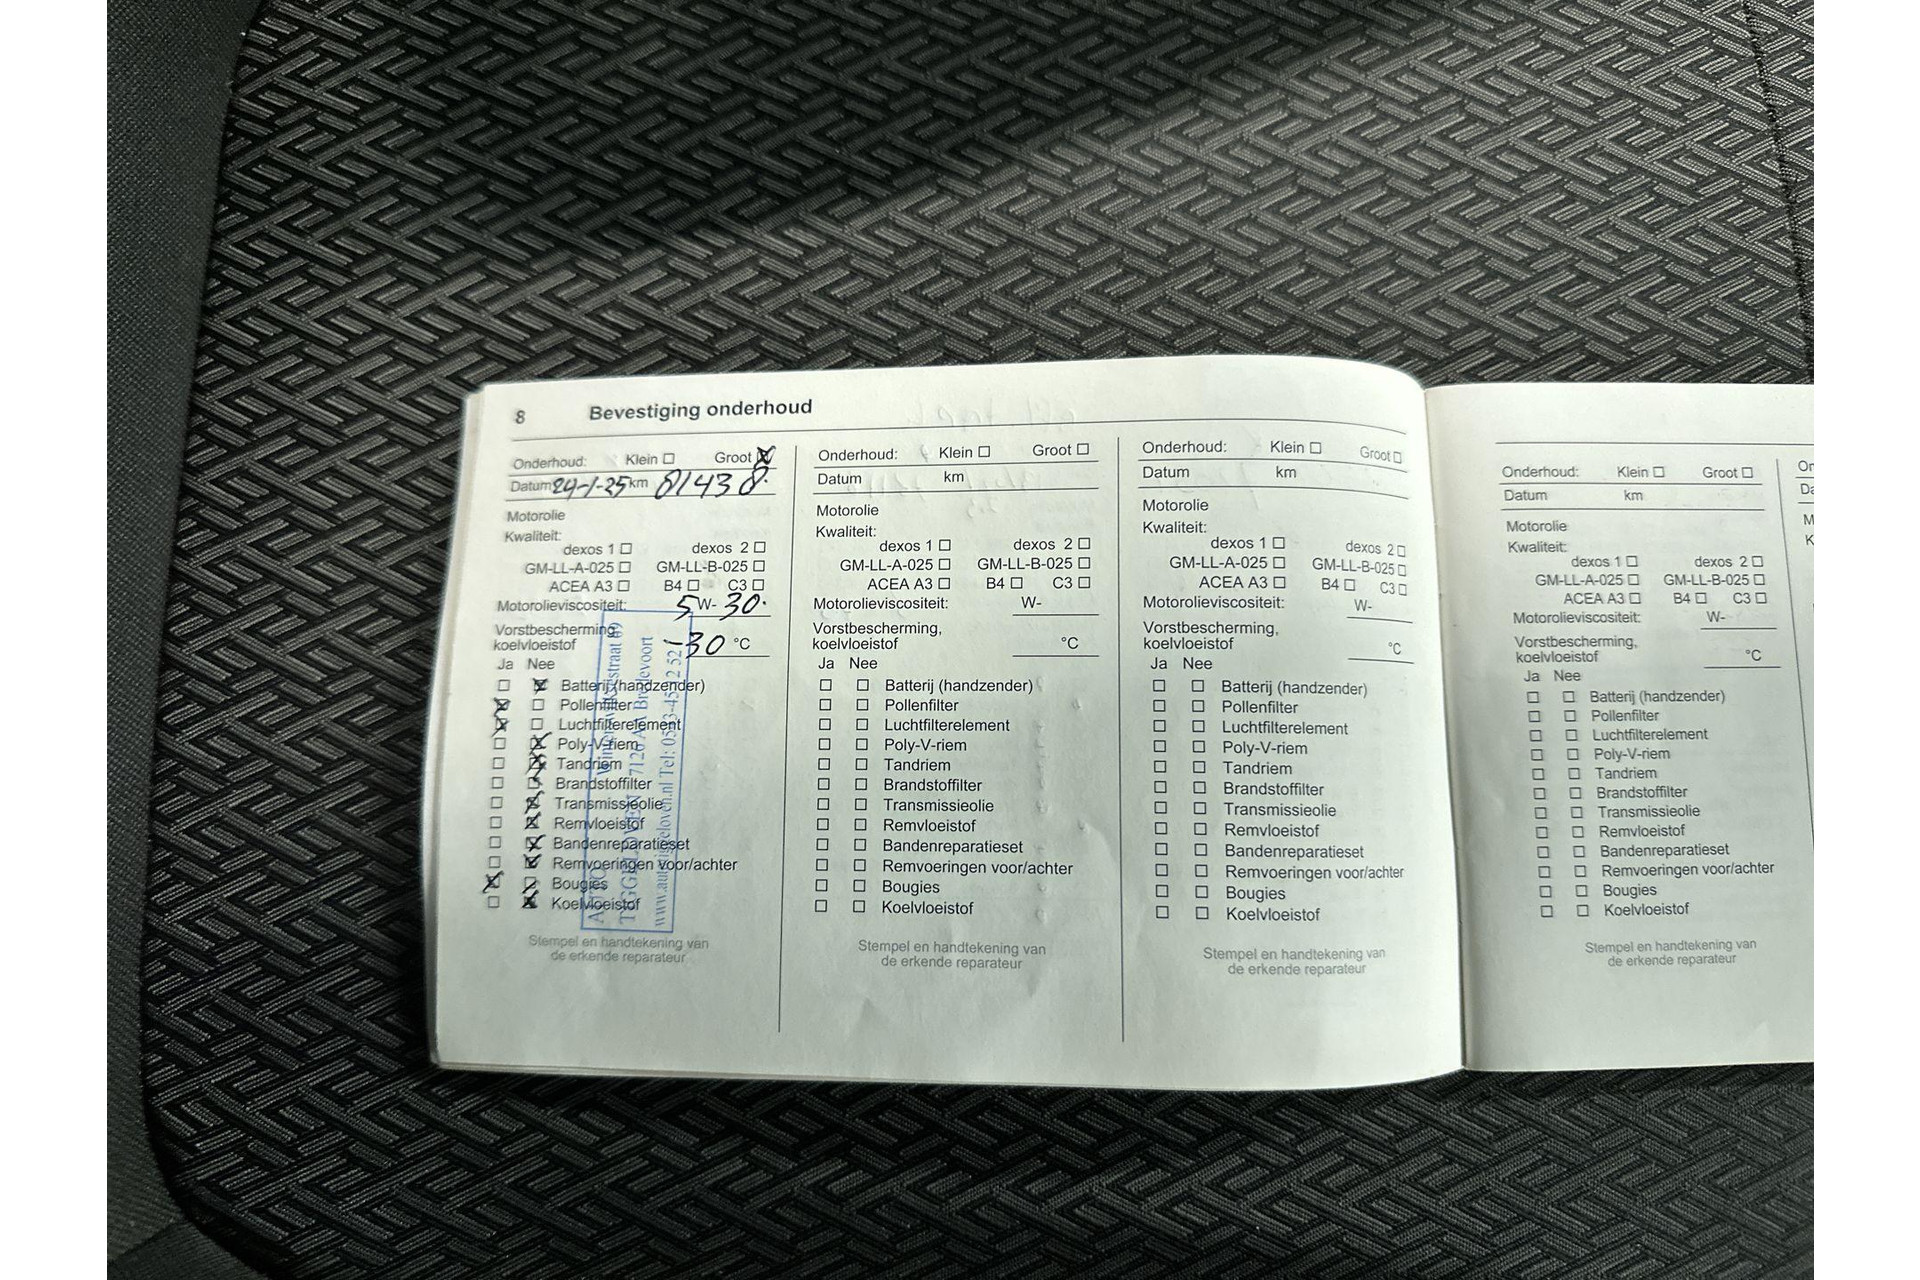 8 Bevestiging onderhoud
Onderhoud: Klein ☐ Groot ☒
Datum 24-1-25 km 81438
Motorolie
Kwaliteit:
dexos 1 ☐ dexos 2 ☐
GM-LL-A-025 ☐ GM-LL-B-025 ☐
ACEA A3 ☐ B4 ☐ C3 ☐
Motorolieviscositeit: 5 W- 30
Vorstbescherming,
koelvloeistof -30 °C
Ja Nee
☐ ☒ Batterij (handzender)
☒ ☐ Pollenfilter
☒ ☐ Luchtfilterelement
☐ ☒ Poly-V-riem
☐ ☒ Tandriem
☐ ☒ Brandstoffilter
☐ ☒ Transmissieolie
☐ ☒ Remvloeistof
☐ ☒ Bandenreparatieset
☐ ☒ Remvoeringen voor/achter
☒ ☐ Bougies
☐ ☒ Koelvloeistof
Stempel en handtekening van
de erkende reparateur
TIGGELOVEN 7126 Bredevoort
Onderhoud: Klein ☐ Groot ☐
Datum km
Motorolie
Kwaliteit:
dexos 1 ☐ dexos 2 ☐
GM-LL-A-025 ☐ GM-LL-B-025 ☐
ACEA A3 ☐ B4 ☐ C3 ☐
Motorolieviscositeit: W-
Vorstbescherming,
koelvloeistof °C
Ja Nee
☐ ☐ Batterij (handzender)
☐ ☐ Pollenfilter
☐ ☐ Luchtfilterelement
☐ ☐ Poly-V-riem
☐ ☐ Tandriem
☐ ☐ Brandstoffilter
☐ ☐ Transmissieolie
☐ ☐ Remvloeistof
☐ ☐ Bandenreparatieset
☐ ☐ Remvoeringen voor/achter
☐ ☐ Bougies
☐ ☐ Koelvloeistof
Stempel en handtekening van
de erkende reparateur
Onderhoud: Klein ☐ Groot ☐
Datum km
Motorolie
Kwaliteit:
dexos 1 ☐ dexos 2 ☐
GM-LL-A-025 ☐ GM-LL-B-025 ☐
ACEA A3 ☐ B4 ☐ C3 ☐
Motorolieviscositeit: W-
Vorstbescherming,
koelvloeistof °C
Ja Nee
☐ ☐ Batterij (handzender)
☐ ☐ Pollenfilter
☐ ☐ Luchtfilterelement
☐ ☐ Poly-V-riem
☐ ☐ Tandriem
☐ ☐ Brandstoffilter
☐ ☐ Transmissieolie
☐ ☐ Remvloeistof
☐ ☐ Bandenreparatieset
☐ ☐ Remvoeringen voor/achter
☐ ☐ Bougies
☐ ☐ Koelvloeistof
Stempel en handtekening van
de erkende reparateur
Onderhoud: Klein ☐ Groot ☐
Datum km
Motorolie
Kwaliteit:
dexos 1 ☐ dexos 2 ☐
GM-LL-A-025 ☐ GM-LL-B-025 ☐
ACEA A3 ☐ B4 ☐ C3 ☐
Motorolieviscositeit: W-
Vorstbescherming,
koelvloeistof °C
Ja Nee
☐ ☐ Batterij (handzender)
☐ ☐ Pollenfilter
☐ ☐ Luchtfilterelement
☐ ☐ Poly-V-riem
☐ ☐ Tandriem
☐ ☐ Brandstoffilter
☐ ☐ Transmissieolie
☐ ☐ Remvloeistof
☐ ☐ Bandenreparatieset
☐ ☐ Remvoeringen voor/achter
☐ ☐ Bougies
☐ ☐ Koelvloeistof
Stempel en handtekening van
de erkende reparateur